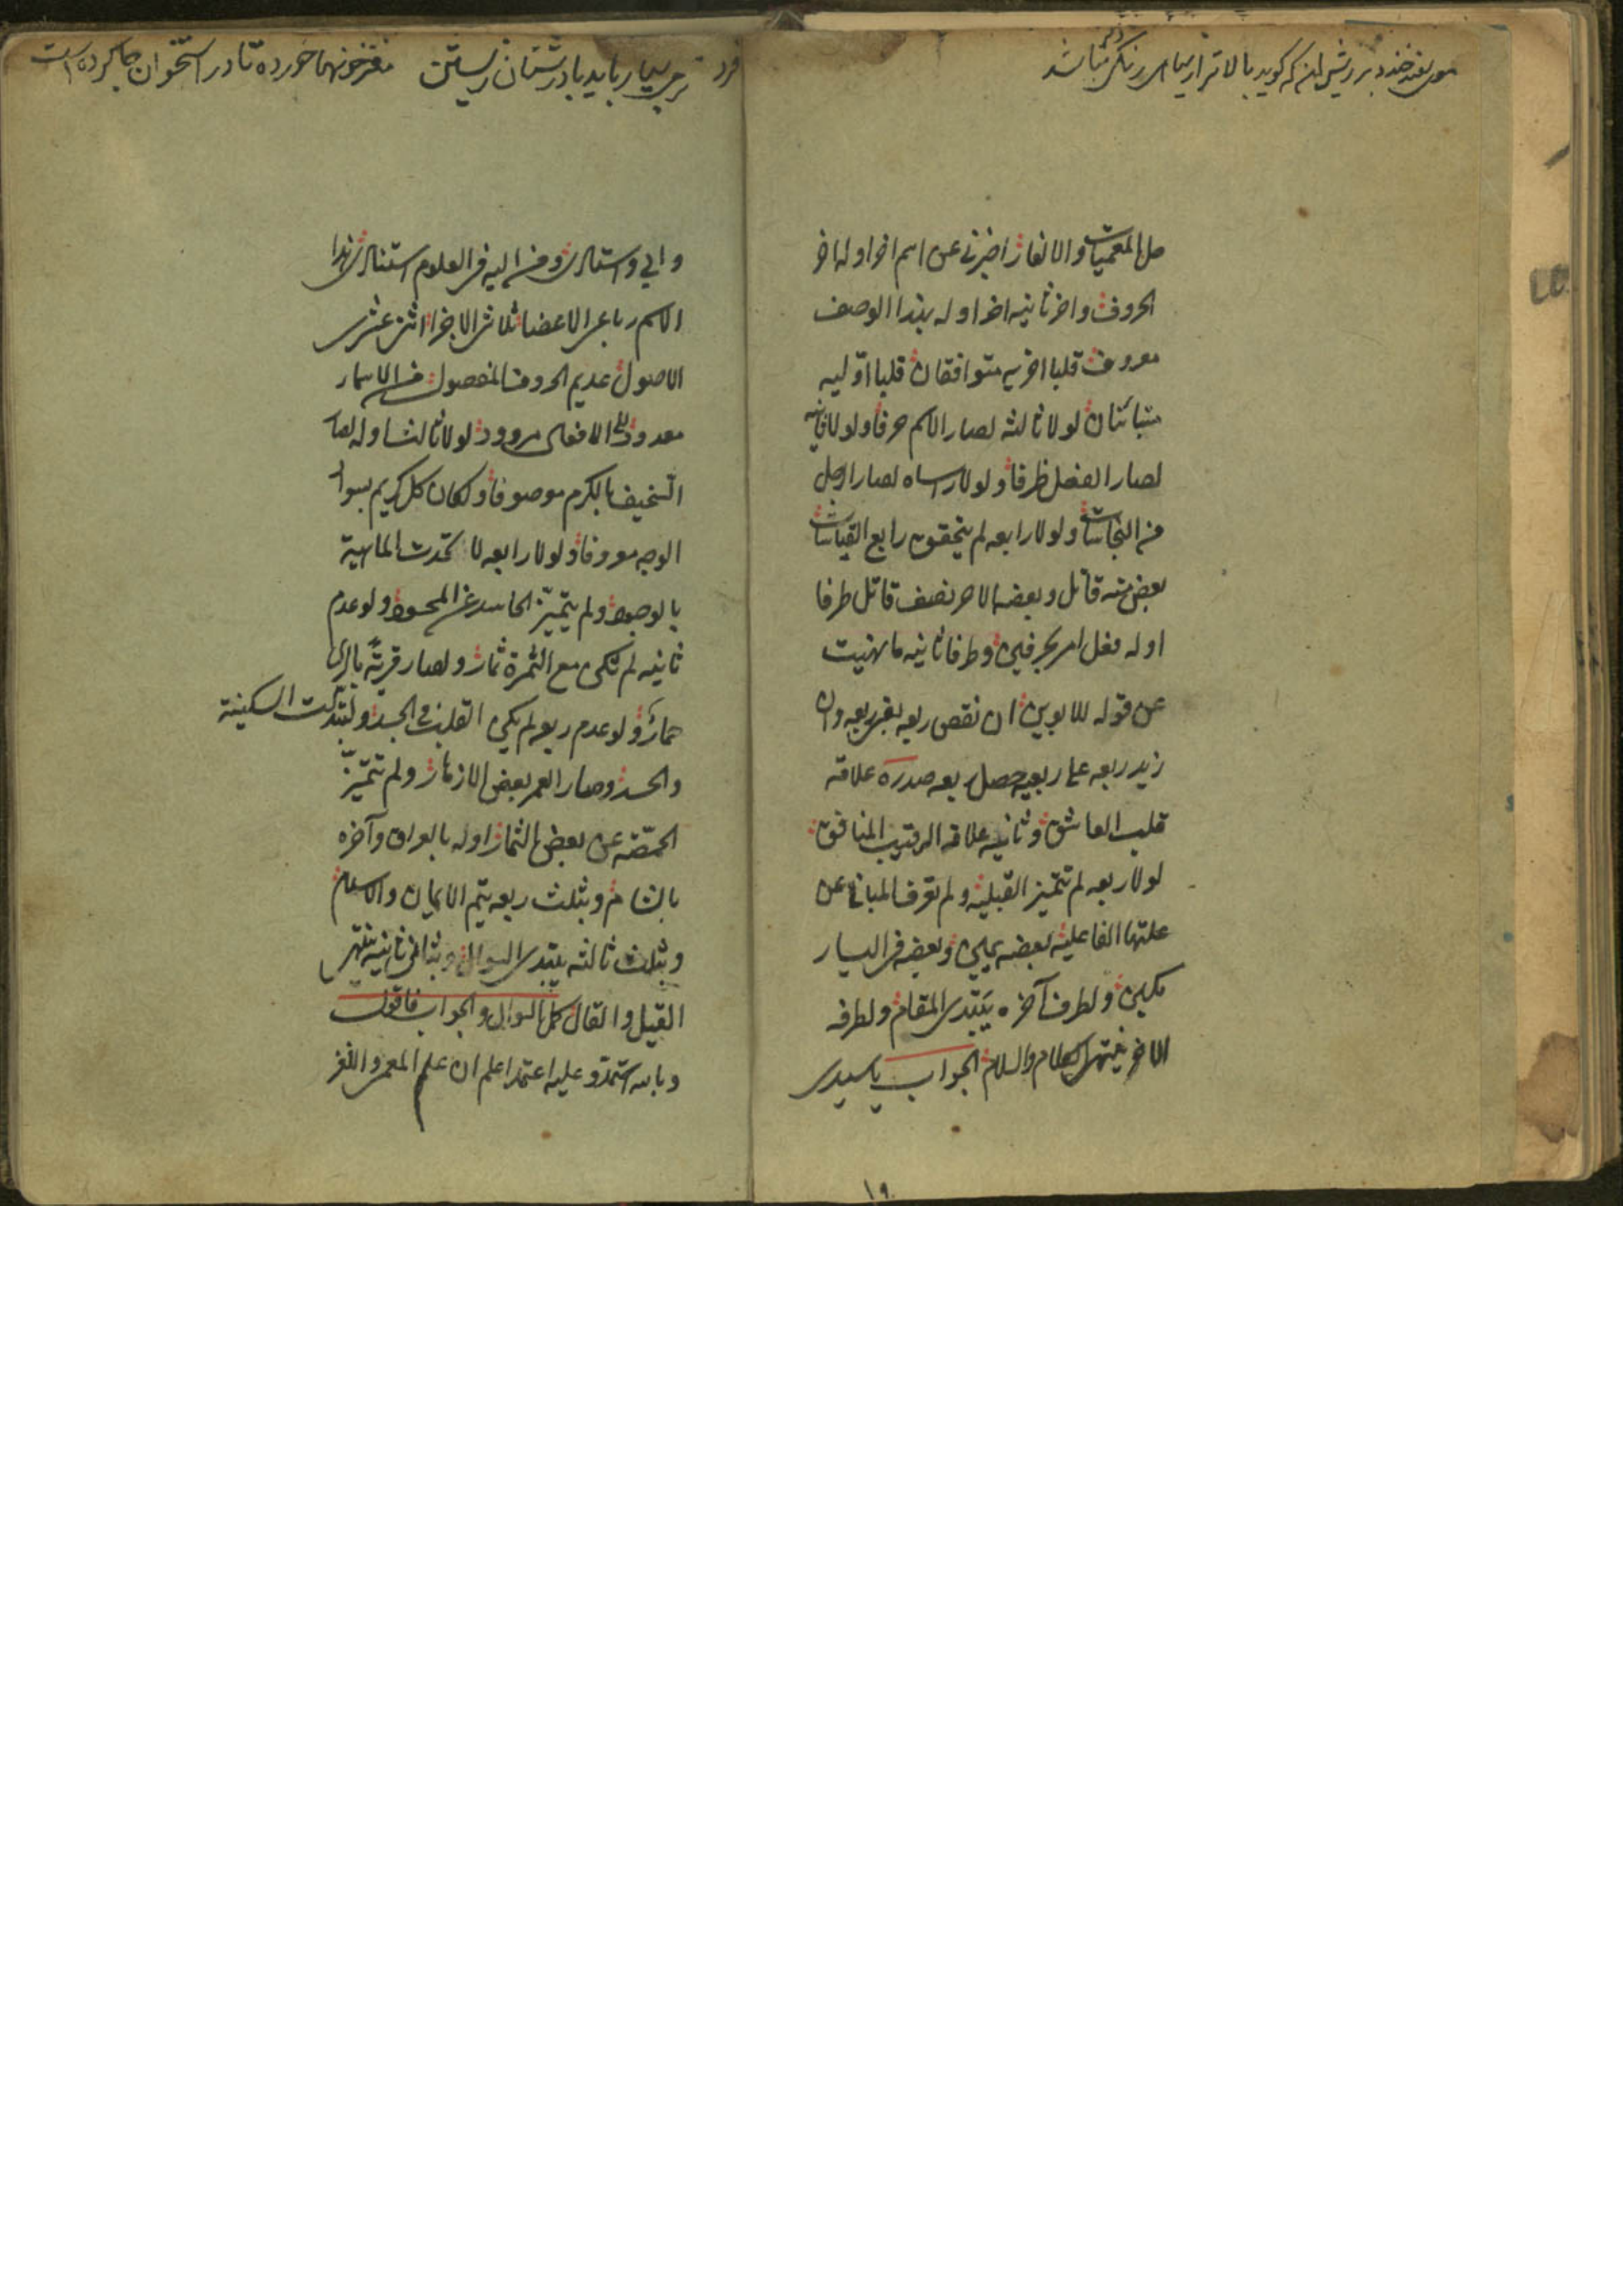 موی سفید خندد بر ریش آن که گوید بالاتر از سیاهی رنگی دگر نباشد
حل المعميات والالغاز اخبرنى عن اسم اخر اوله اخر
الحروف واخر ثانيه اخر اوله بندا الوصف
معروف قلبا اخريه متوافقان قلبا اوليه
متبائنان لولا ثالثه لصار الاسم حرفا ولولا ثانيه
لصار الفعل ظرفا ولولا راساه لصار الرجل
من النجاسات ولولا رابعه لم يتحقق رابع القياسات
بعض منه قاتل وبعضه الاخر نصف قاتل طرفا
اوله فعل امر بحرفين وطرفا ثانيه ما نهيت
عن قوله للابوين ان نقص ربعه بقى ربعه وان
زيد ربعه على ربعيه حصل ربعه صدره علاقه
قلب العاشق وثانيه علاقه الرقيب المنافق
لولا ربعه لم تتميز القبلية ولم تعرف المبانى عن
علتها الفاعلية بعضه يمين وبعضه فى اليسار
مكين ولطرف آخره يبتدى المقام ولطرفه
الاخر ينتهى الكلام والسلام الجواب ياسيدى
۱۹
فرد
نرمى بسيار بايد با درشتان زيستن مغز خونها خورده تا در استخوان جا کرده است
وابى واستادى ومن اليه فى العلوم استنادى هذا
الاسم رباعى الاعضا ثلاثى الاجزا اثنى عشرى
الاصول عديم الحروف المفصول من الاسماء
معدود وفى الافعال مردود لولا ثالثه اوله لصار
السخيف بالكرم موصوفا ولكان كل كريم بسواد
الوجه معروفا ولولا رابعه لاتحدت الماهية
بالوجود ولم يتميز الحاسد عن المحسود ولو عدم
ثانيه لم تكن مع الثمرة ثمار ولصار قرية بالرى
حمار ولو عدم ربعه لم يكن القلب فى الجسد ولتبدلت السكينة
والحسد وصار العمر بعض الازمان ولم تتميز
الحصة عن بعض الثمار اوله بالعراق وآخره
بالشام وبثلث ربعه يتم الايمان والاسلام
وبثلث ثالثه يبتدى السوال وبثانى ثانيه ينتهى
القيل والقال كمل السوال والجواب فاقول
وبالله استمد وعليه اعتمد اعلم ان علم المعمى واللغز